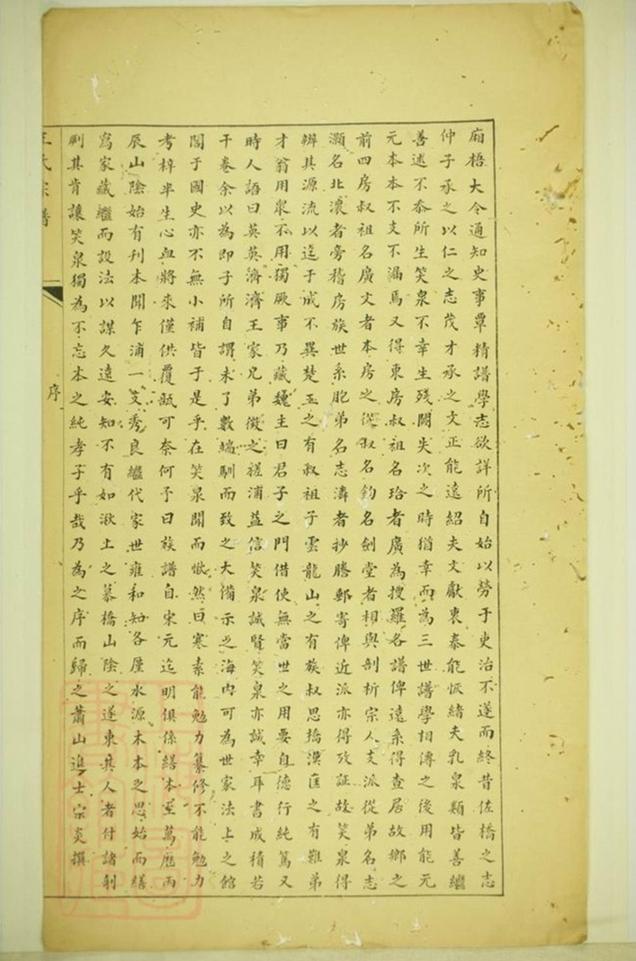 廟梧大令通知史事覃精譜學志欲詳所自始以勞于吏治不遂而終昔佐橋之志
仲子承之以仁之志茂才承之文正能遠紹夫文獻衷泰能恢緒夫乳泉類皆善繼
善述不忝所生笑泉不幸生殘闕失次之時猶幸而為三世譜學相傳之後用能元
元本本不支不漏焉又得東房叔祖名珨者廣為搜羅各譜俾遠系得查居故鄉之
前四房叔祖名廣文者本房之從叔名鈞名劍堂者相與剖析宗人支派從弟名志
灝名北瀼者旁稽房族世系胞弟名志濤者抄謄郵寄俾近派亦得攷証故笑泉得
辨其源流以迄于成不異楚玉之有叔祖子雲龍山之有族叔思橋漢匡之有難弟
才翁用泉不用獨厥事乃藏魏主曰君子之門借使無當世之用要自德行純篤又
時人語曰英英濟濟王家兄弟徵之槎浦益信笑泉誠賢笑泉亦誠幸耳書成積若
干卷余以為即子所自謂未了數端馴而致之大備示之海內可為世家法上之館
閣于國史亦不無小補皆于是乎在笑泉聞而愀然曰寒素能勉力纂修不能勉力
考梓半生心血將來僅供覆瓿可奈何予曰族譜自宋元迄明俱係繕本至萬曆丙
辰山陰始有刊本聞乍浦一支秀良繼代家世雍和知各厪水源木本之思始而繕
寫家藏繼而設法以謀久遠安知不有如湫上之慕橋山陰之遂東其人者付諸剞
劂其肯讓笑泉獨為不忘本之純孝子乎哉乃為之序而歸之蕭山進士宗炎撰
王氏宗譜
序